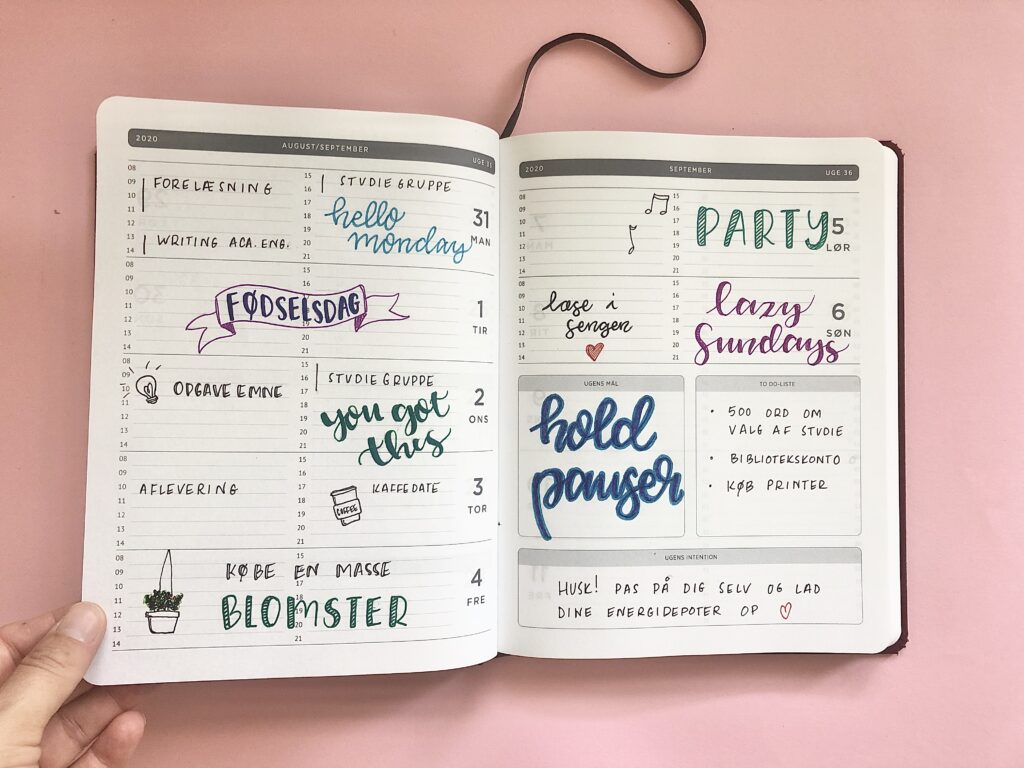 2020
AUGUST/SEPTEMBER
08
09
10
11
12
13
14
FORELÆSNING
WRITING ACA. ENG.
15
16
17
18
19
20
STUDIEGRUPPE
hello
monday
31
MAN
08
09
10
11
12
13
14
15
FØDSELSDAG
19
20
21
1
TIR
08
09
10
11
12
13
14
OPGAVE EMNE
15
16
17
18
19
20
21
STUDIEGRUPPE
you got
this
2
ONS
08
09
10
11
12
13
14
AFLEVERING
15
16
17
18
19
20
21
COFFEE
KAFFEDATE
3
TOR
08
09
10
11
12
13
14
15
KØBE EN MASSE
17
BLOMSTER
20
21
4
FRE
2020
SEPTEMBER
UGE 36
08
09
10
11
12
13
14
15
16
17
18
19
20
21
PARTY
5
LØR
08
09
10
11
12
13
14
læse i
sengen
15
16
17
18
19
20
21
lazy
Sundays
6
SØN
UGENS MÅL
hold
pauser
TO DO-LISTE
• 500 ORD OM
VALG AF STUDIE
• BIBLIOTEKSKONTO
• KØB PRINTER
UGENS INTENTION
HUSK! PAS PÅ DIG SELV OG LAD
DINE ENERGIDEPOTER OP